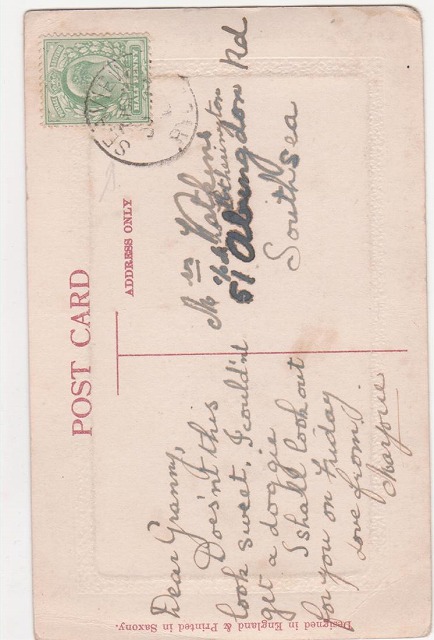 POST CARD
ADDRESS ONLY
HALF PENNY
Dear Granny,
Doesn't this
look sweet, I couldn't
get a doggie
I shall look out
for you on Friday
Love from
Marjorie
Mrs Watkins
51 Abingdon Rd
Southsea
Designed in England & Printed in Saxony.